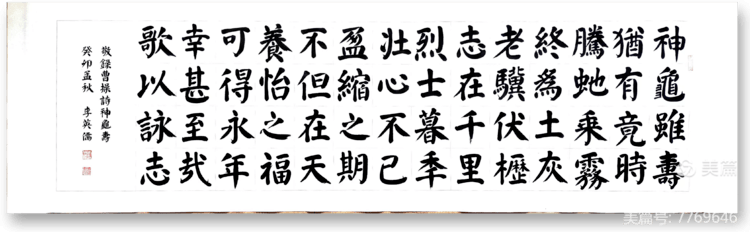 神龜雖壽
猶有竟時
騰虵乘霧
終為土灰
老驥伏櫪
志在千里
烈士暮秊
壮心不已
盈縮之期
不但在天
養怡之福
可得永年
幸甚至哉
歌以詠志
敬錄曹操詩神龜壽
癸卯孟秋 李英濡
美篇
美篇号: 7769646